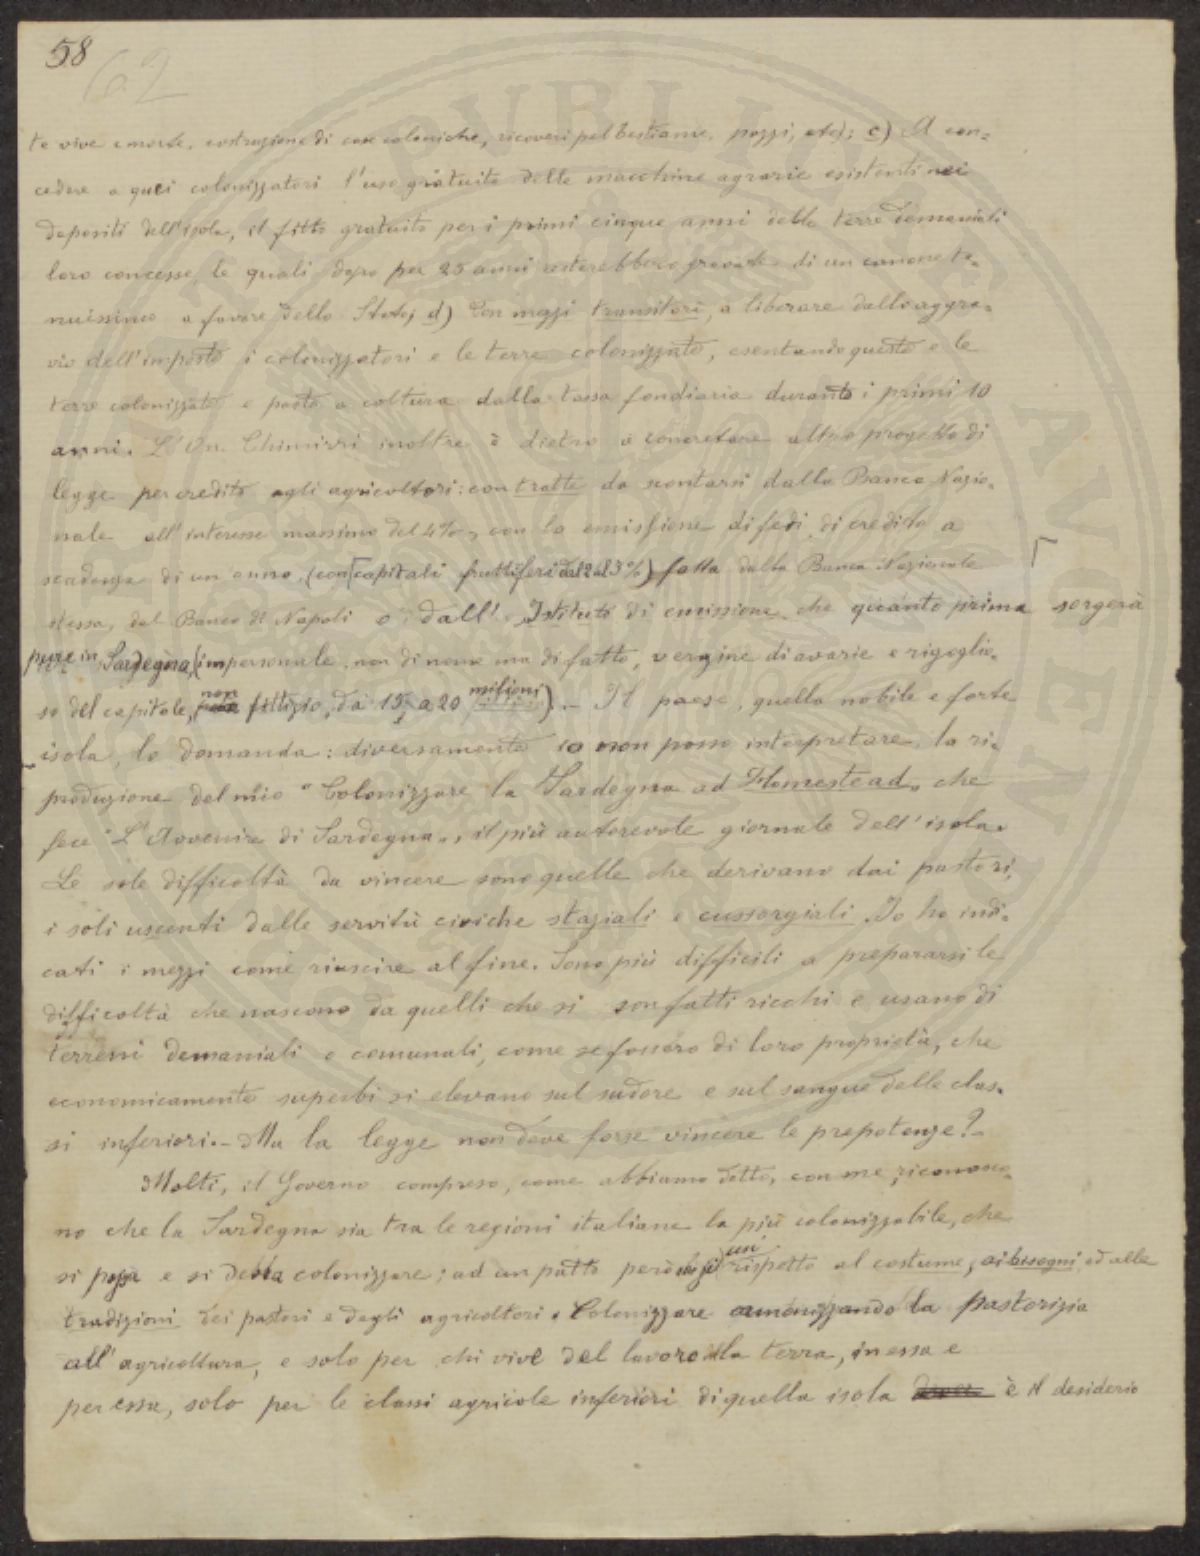 58
62
te vive e morte, costruzione di case coloniche, ricoveri pel bestiame, pozzi, etc); c) A con=
cedere a quei colonizzatori l'uso gratuito delle macchine agrarie esistenti nei
depositi dell'isola, il fitto gratuito per i primi cinque anni delle terre demaniali
loro concesse, le quali dopo per 25 anni resterebbero gravate di un canone te=
nuissimo a favore dello Stato; d) Con mezzi transitori, a liberare dall'aggra=
vio dell'imposta i colonizzatori e le terre colonizzate, esentando queste e le
terre colonizzate e poste a coltura dalla tassa fondiaria durante i primi 10
anni. L'On. Chimirri inoltre è dietro a concretare altro progetto di
legge per credito agli agricoltori: con tratte da scontarsi dalla Banca Nazio=
nale all'interesse massimo del 4%, con la emissione di fedi di credito a
scadenza di un anno, (con capitali fruttiferi dal 2 al 3%) fatta dalla Banca Nazionale
stessa, dal Banco di Napoli o dall' Istituto di emissione che quanto prima sorgerà
pure in Sardegna, (impersonale, non di nome ma di fatto, vergine di avarie e rigoglio=
so del capitale, non fittizio, da 15 a 20 milioni). - Il paese, quella nobile e forte
isola, lo domanda: diversamente io non posso interpretare la ri=
produzione del mio "Colonizzare la Sardegna ad Homestead„ che
fece "L'Avvenire di Sardegna„, il più autorevole giornale dell'isola.
Le sole difficoltà da vincere sono quelle che derivano dai pastori,
i soli uscenti dalle servitù civiche staziali e cussorgiali. Io ho indi=
cati i mezzi come riuscire al fine. Sono più difficili a prepararsi le
difficoltà che nascono da quelli che si son fatti ricchi e usano di
terreni demaniali e comunali, come se fossero di loro proprietà, che
economicamente superbi si elevano sul sudore e sul sangue delle clas=
si inferiori. - Ma la legge non deve forse vincere le prepotenze? -
Molti, il Governo compreso, come abbiamo detto, con me, riconosco=
no che la Sardegna sia tra le regioni italiane la più colonizzabile, che
si possa e si debba colonizzare; ad un patto però che si usi rispetto al costume, ai bisogni, ed alle
tradizioni dei pastori e degli agricoltori. Colonizzare armonizzando la pastorizia
all'agricoltura, e solo per chi vive del lavoro della terra, in essa e
per essa, solo per le classi agricole inferiori di quella isola è il desiderio